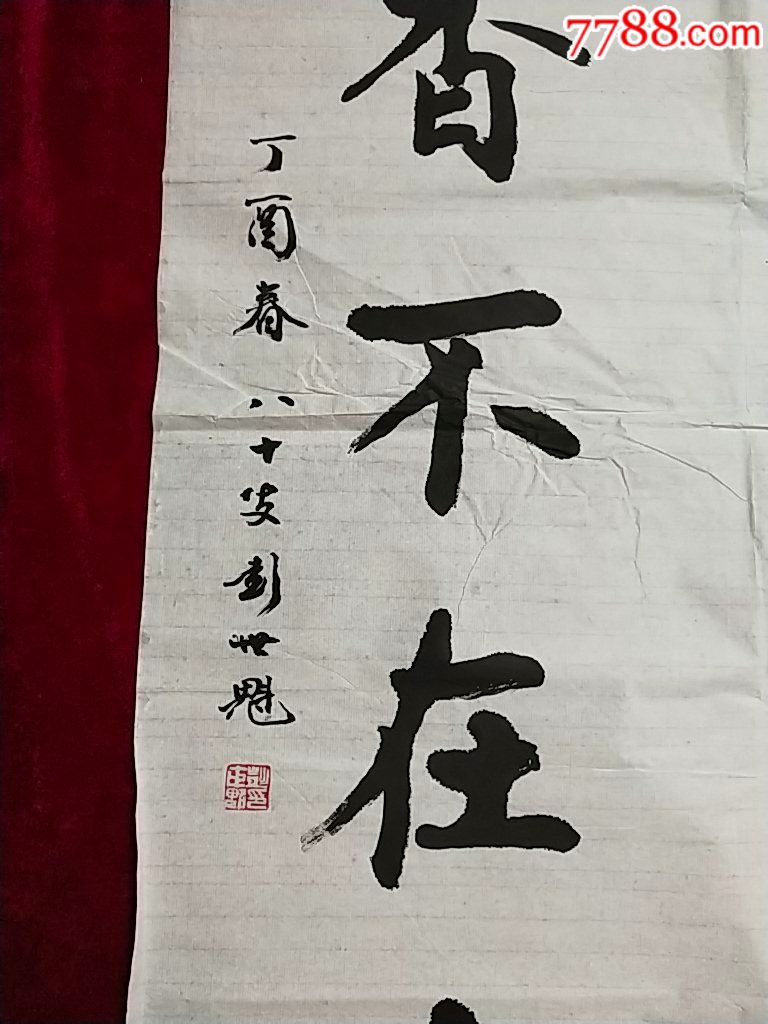 7788.com
香不在
丁酉春 八十叟彭世魁